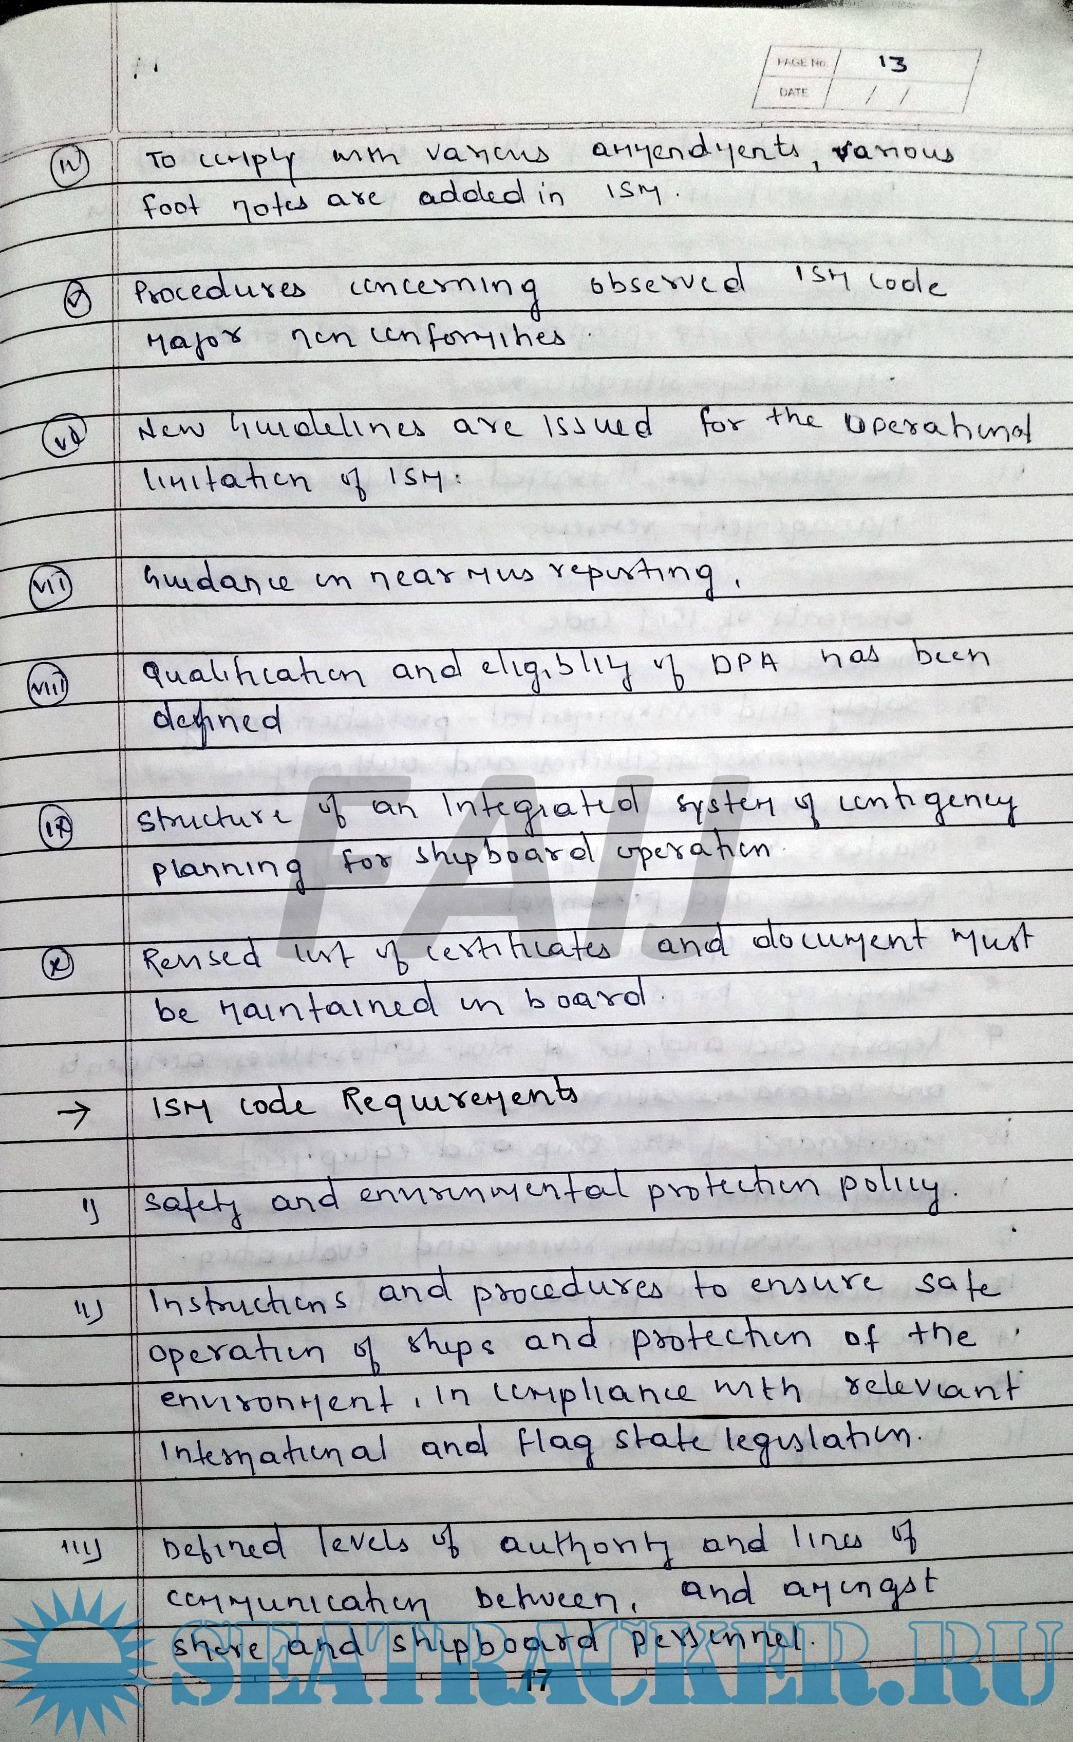 PAGE No. 13
DATE / /
iv) To comply with various ammendments, various
foot notes are added in ISM.
v) Procedures concerning observed ISM code
major non conformities.
vi) New Guidelines are issued for the operational
limitation of ISM.
vii) Guidance on near miss reporting.
viii) Qualification and eligiblity of DPA has been
defined
ix) Structure of an Integrated system of contigency
planning for shipboard operation.
x) Revised list of certificates and document must
be maintained on board.
→ ISM code Requirements
i) Safety and environmental protection policy.
ii) Instructions and procedures to ensure safe
operation of ships and protection of the
environment, in compliance with relevant
International and flag state legislation.
iii) Defined levels of authority and lines of
communication between, and amongst
shore and shipboard personnel.
17
FAIJ
SEATRACKER.RU